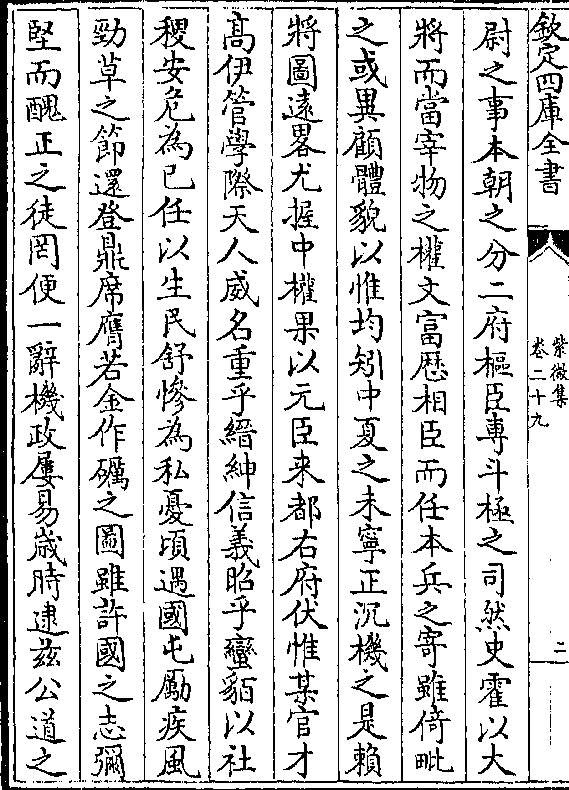 欽定四庫全書
紫微集
卷二十九
二
尉之事本朝之分二府樞臣專斗極之司然史霍以大
將而當宰物之權文富歴相臣而任本兵之寄雖倚毗
之或異顧體貌以惟均矧中夏之未寧正沉機之是賴
將圖逺畧尤握中權果以元臣来都右府伏惟某官才
髙伊管學際天人威名重乎縉紳信義昭乎蠻貊以社
稷安危為已任以生民舒慘為私憂頃遇國屯勵疾風
勁草之節還登鼎席膺若金作礪之圖雖許國之志彌
堅而醜正之徒罔便一辭機政屢易歳時逮兹公道之